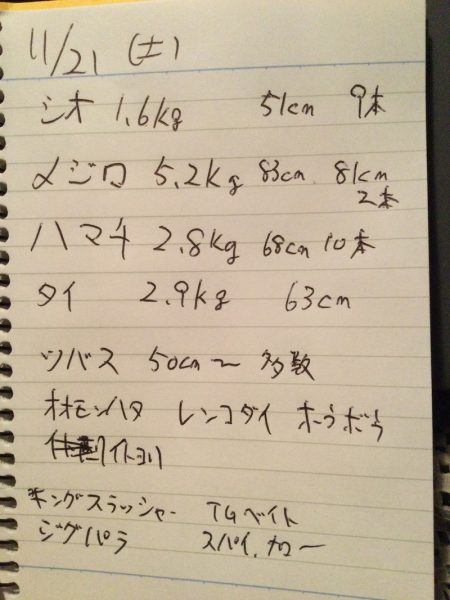 11/21 (土)
シオ 1.6kg 51cm 9本
メジロ 5.2kg 83cm 81cm
2本
ハマチ 2.8kg 68cm 10本
タイ 2.9kg 63cm
ツバス 50cm〜 多数
オオモンハタ レンコダイ ホウボウ
イトヨリ
キングスラッシャー TGベイト
ジグパラ スパイ.